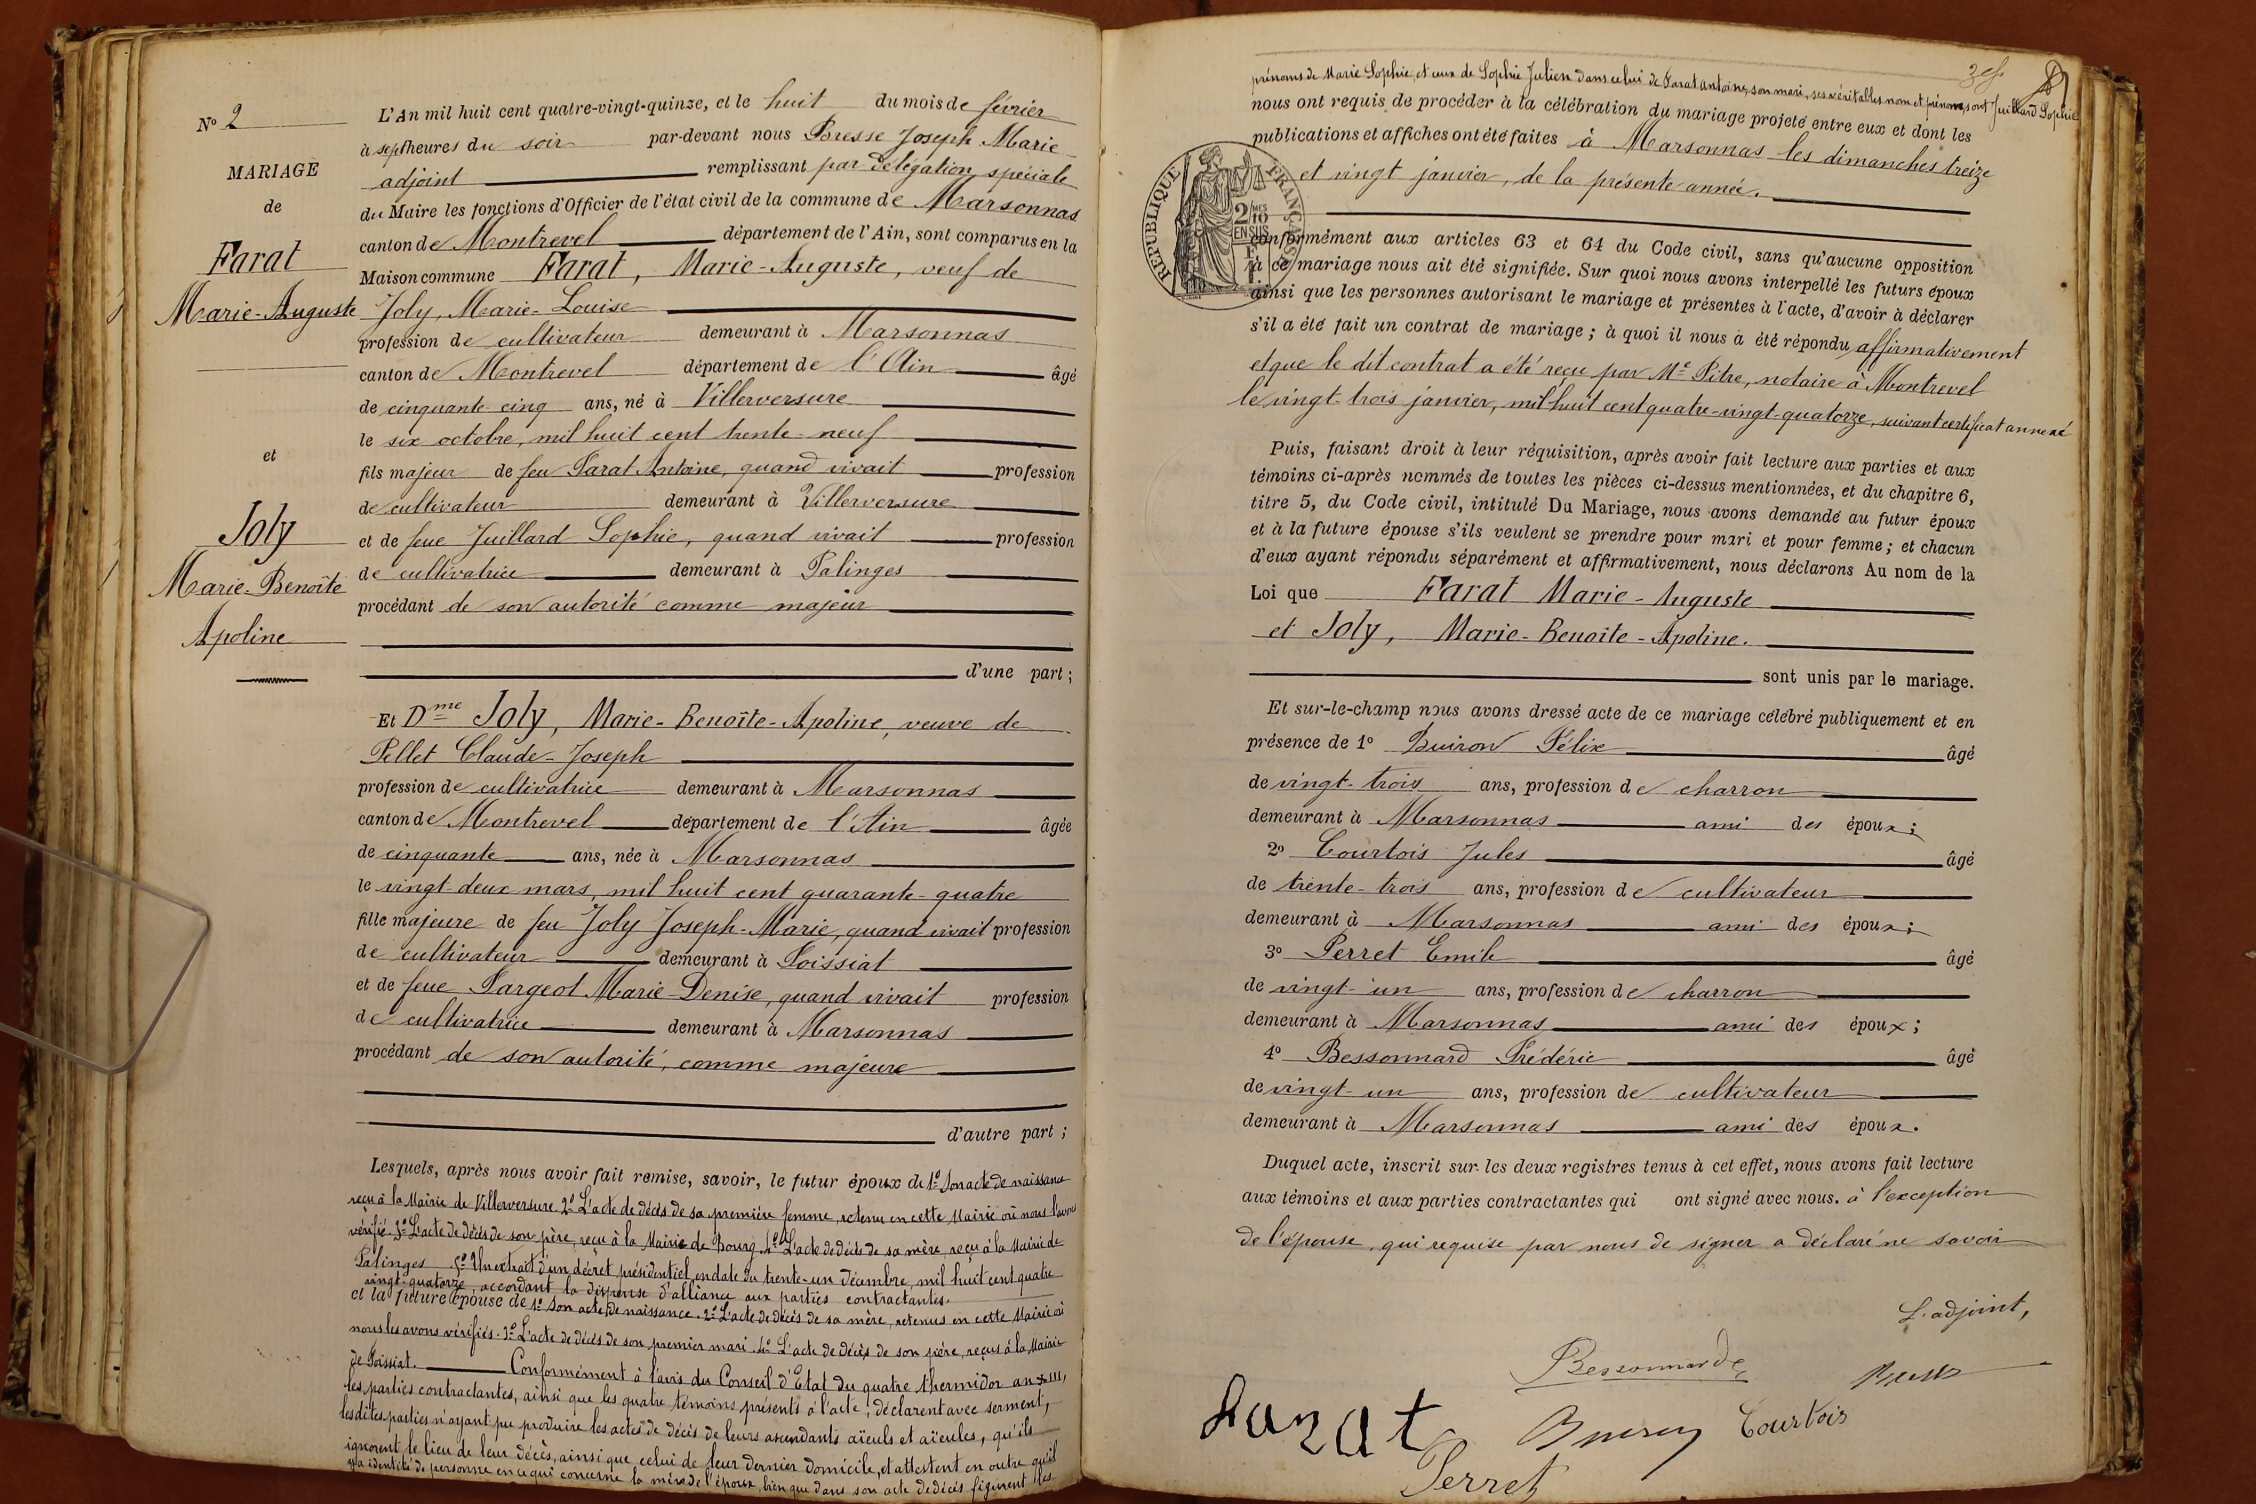 N° 2
MARIAGE
de
Farat
Marie-Auguste
et
Joly
Marie-Benoîte
Apoline
L'An mil huit cent quatre-vingt-quinze, et le huit du mois de février
à sept heures du soir par-devant nous Bresse Joseph Marie
adjoint remplissant par délégation spéciale
du Maire les fonctions d'Officier de l'état civil de la commune de Marsonnas
canton de Montrevel département de l'Ain, sont comparus en la
Maison commune Farat, Marie-Auguste, veuf de
Joly, Marie-Louise
profession de cultivateur demeurant à Marsonnas
canton de Montrevel département de l'Ain âgé
de cinquante cinq ans, né à Villerversure
le six octobre, mil huit cent trente-neuf
fils majeur de feu Farat Antoine, quand vivait profession
de cultivateur demeurant à Villerversure
et de feue Juillard Sophie, quand vivait profession
de cultivatrice demeurant à Salinges
procédant de son autorité comme majeur
d'une part;
Et Dme Joly, Marie-Benoîte-Apoline, veuve de
Pellet Claude-Joseph
profession de cultivatrice demeurant à Marsonnas
canton de Montrevel département de l'Ain âgée
de cinquante ans, née à Marsonnas
le vingt-deux mars, mil huit cent quarante-quatre
fille majeure de feu Joly Joseph-Marie, quand vivait profession
de cultivateur demeurant à Foissiat
et de feue Fargeot Marie-Denise, quand vivait profession
de cultivatrice demeurant à Marsonnas
procédant de son autorité, comme majeure
d'autre part;
Lesquels, après nous avoir fait remise, savoir, le futur époux de 1° Son acte de naissance
reçu à la Mairie de Villerversure 2° L'acte de décès de sa première femme, retenu en cette Mairie où nous l'avons
vérifié. 3° L'acte de décès de son père, reçu à la Mairie de Bourg. 4° L'acte de décès de sa mère, reçu à la Mairie de
Salinges 5° Un extrait d'un décret présidentiel, en date du trente-un décembre, mil huit cent quatre
vingt-quatorze, accordant la dispense d'alliance aux parties contractantes.
et la future épouse de 1° Son acte de naissance. 2° L'acte de décès de sa mère, retenus en cette Mairie où
nous les avons vérifiés. 3° L'acte de décès de son premier mari. 4° L'acte de décès de son père, reçus à la Mairie
de Foissiat. Conformément à l'avis du Conseil d'Etat du quatre thermidor an XIII,
les parties contractantes, ainsi que les quatre témoins présents à l'acte, déclarent avec serment,
les dites parties n'ayant pu produire les actes de décès de leurs ascendants aïeuls et aïeules, qu'ils
ignorent le lieu de leur décès, ainsi que celui de leur dernier domicile, et attestent en outre qu'il
y a identité de personne en ce qui concerne la mère de l'époux, bien que dans son acte de décès figurent les
prénoms de Marie Sophie, et ceux de Sophie Julien dans celui de Farat Antoine, son mari, ses véritables nom et prénoms sont Juillard Sophie
nous ont requis de procéder à la célébration du mariage projeté entre eux et dont les
publications et affiches ont été faites à Marsonnas les dimanches treize
et vingt janvier, de la présente année.
RÉPUBLIQUE FRANÇAISE
2/10 MES
EN SUS
conformément aux articles 63 et 64 du Code civil, sans qu'aucune opposition
à ce mariage nous ait été signifiée. Sur quoi nous avons interpellé les futurs époux
ainsi que les personnes autorisant le mariage et présentes à l'acte, d'avoir à déclarer
s'il a été fait un contrat de mariage; à quoi il nous a été répondu affirmativement
et que le dit contrat a été reçu par Me Pitre, notaire à Montrevel
le vingt-trois janvier, mil huit cent quatre-vingt-quatorze, suivant certificat annexé
Puis, faisant droit à leur réquisition, après avoir fait lecture aux parties et aux
témoins ci-après nommés de toutes les pièces ci-dessus mentionnées, et du chapitre 6,
titre 5, du Code civil, intitulé Du Mariage, nous avons demandé au futur époux
et à la future épouse s'ils veulent se prendre pour mari et pour femme; et chacun
d'eux ayant répondu séparément et affirmativement, nous déclarons Au nom de la
Loi que Farat Marie-Auguste
et Joly, Marie-Benoîte-Apoline.
sont unis par le mariage.
Et sur-le-champ nous avons dressé acte de ce mariage célébré publiquement et en
présence de 1° Buiron Félix âgé
de vingt-trois ans, profession de charron
demeurant à Marsonnas ami des époux;
2° Courtois Jules âgé
de trente-trois ans, profession de cultivateur
demeurant à Marsonnas ami des époux;
3° Perret Emile âgé
de vingt-un ans, profession de charron
demeurant à Marsonnas ami des époux;
4° Bessonnard Frédéric âgé
de vingt-un ans, profession de cultivateur
demeurant à Marsonnas ami des époux.
Duquel acte, inscrit sur les deux registres tenus à cet effet, nous avons fait lecture
aux témoins et aux parties contractantes qui ont signé avec nous. à l'exception
de l'épouse, qui requise par nous de signer a déclaré ne savoir
L'adjoint,
Bessonnard
Farat
Courtois
Perret